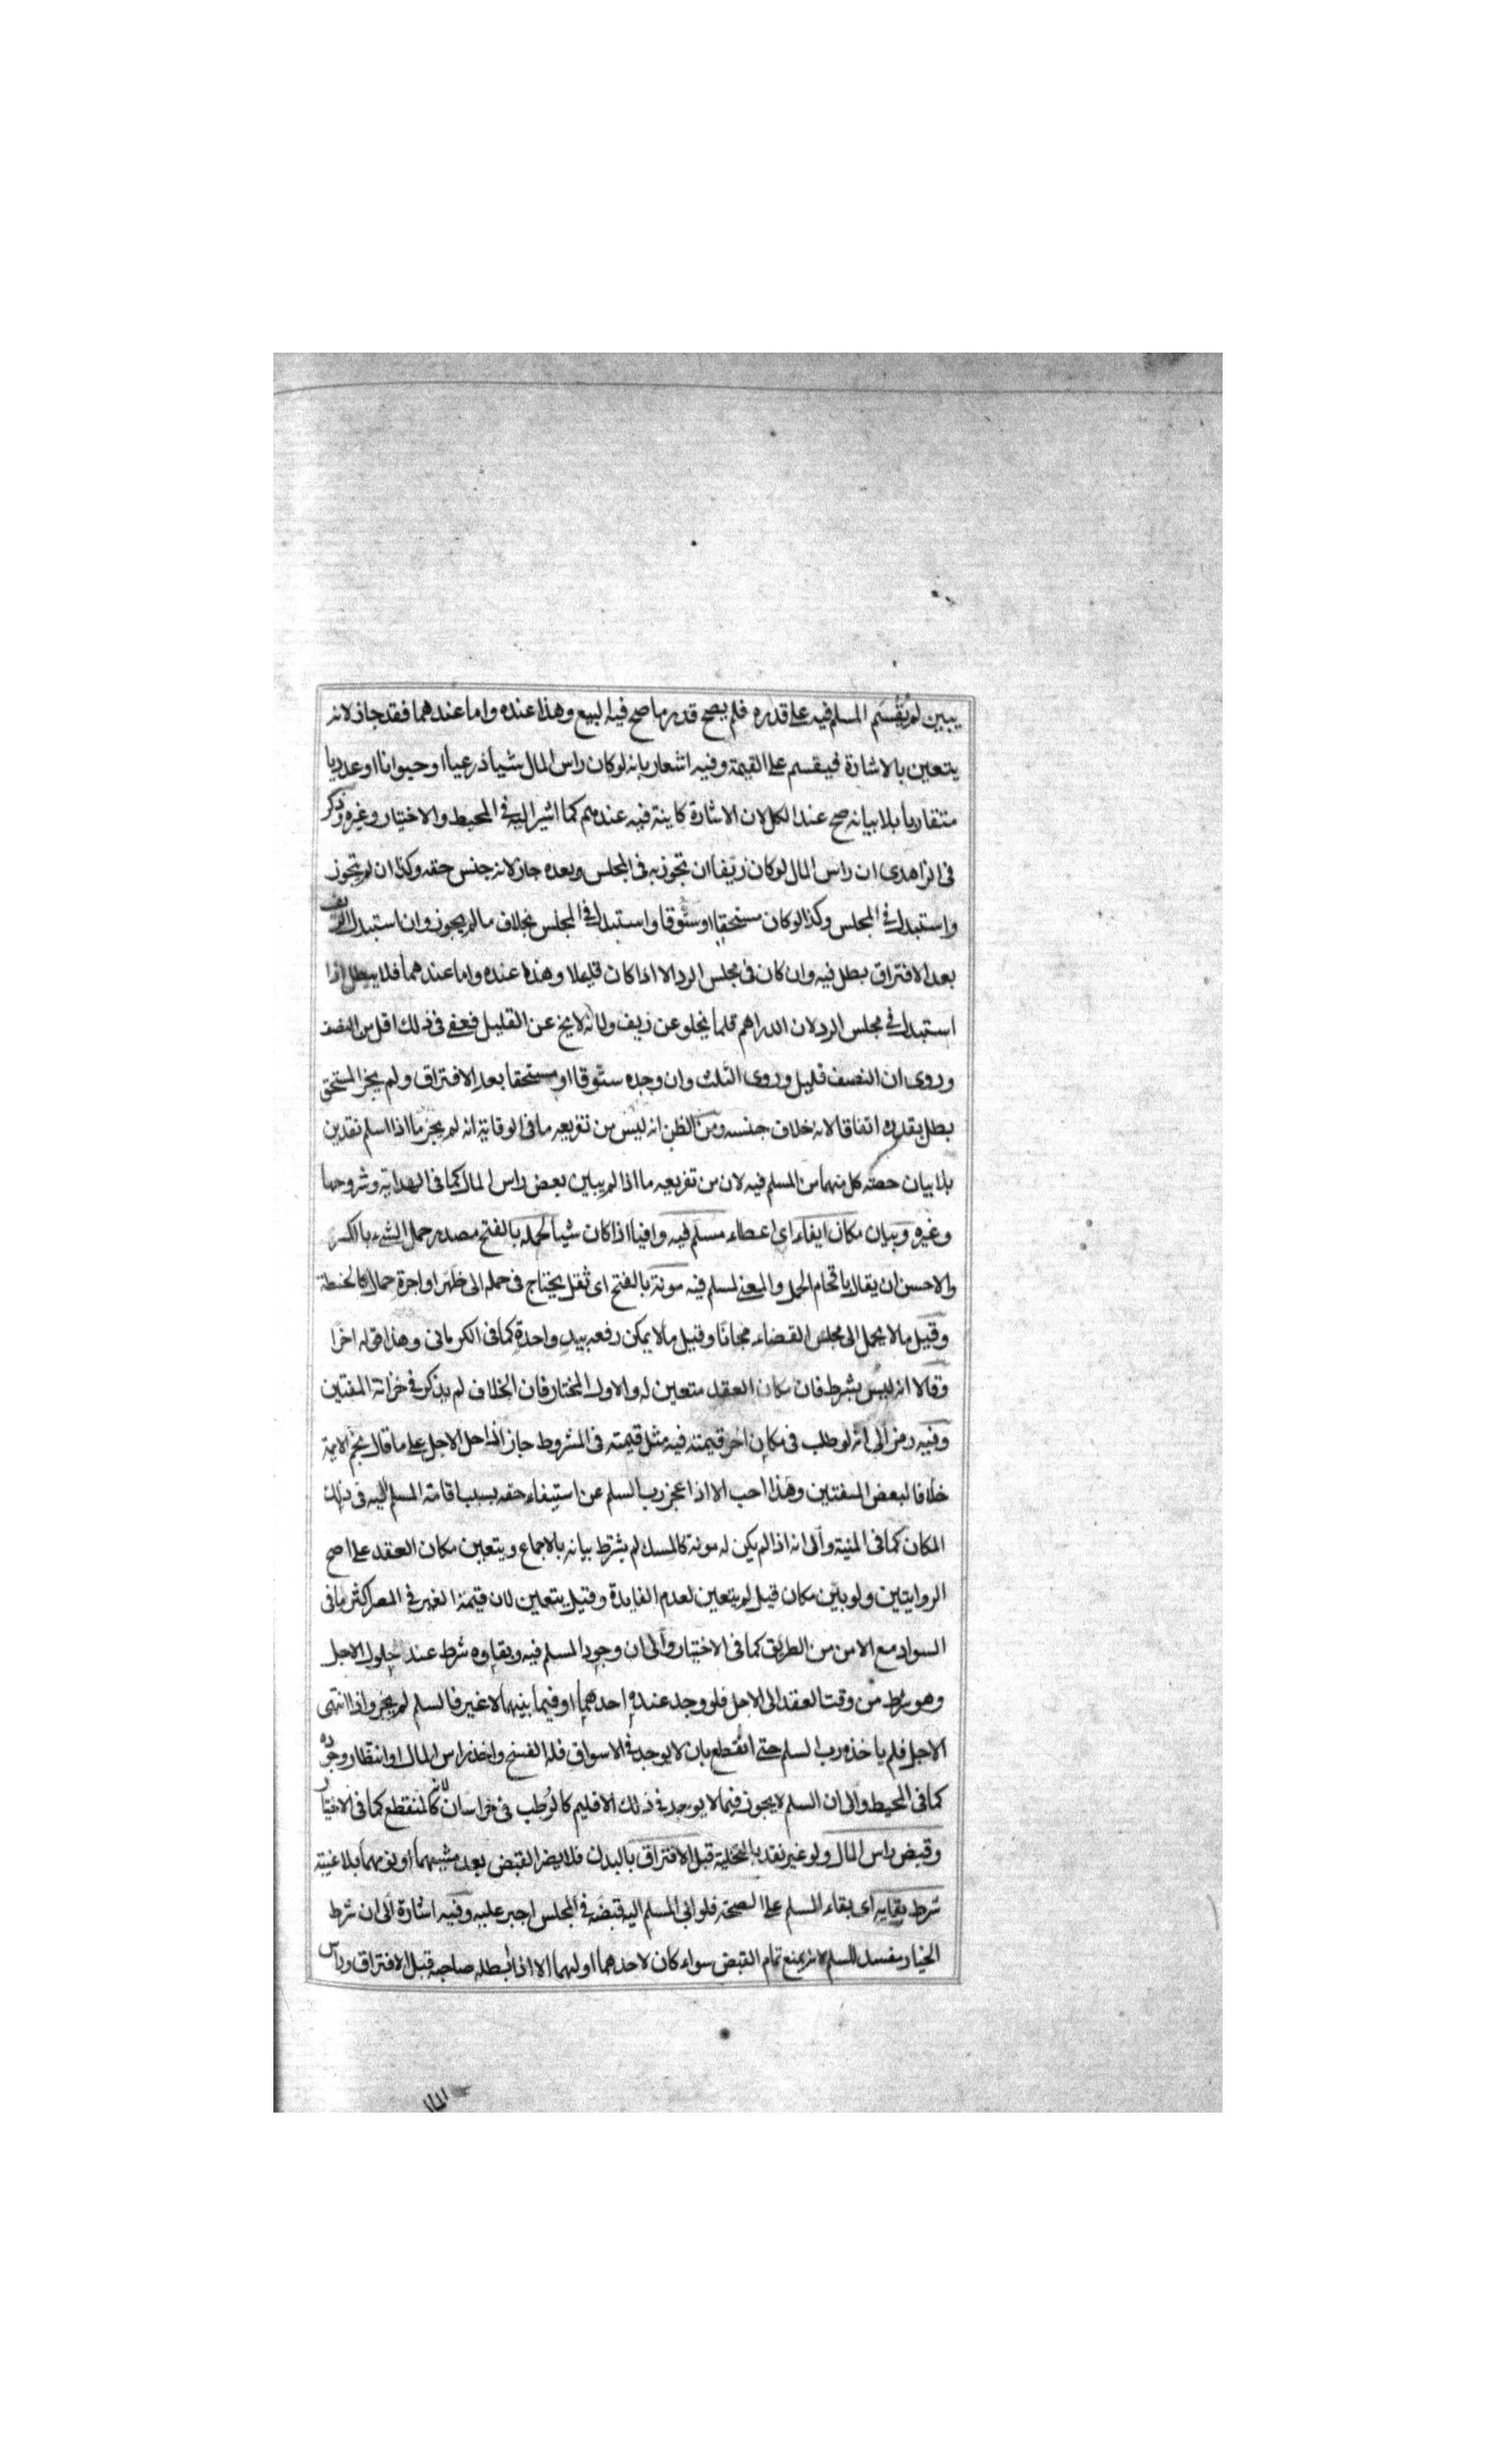 يبين لم يُقْسَم المسلم فيه على قدره فلم يصح قدر ما صح فيه البيع وهذا عنده واما عندهما فقد جاز لانه
يتعين بالاشارة فيقسم على القيمة وفيه اشعار بانه لو كان راس المال شيأ ذرعيا او حيوانا او عدديا
متقاربا بلا بيانه صح عند الكل لان الاشارة كاينة فيه عندهم كما اشير اليه في المحيط والاختيار وغيره وذكر
فى الزاهدى ان راس المال لو كان زيفا ان تجوز به فى المجلس وبعده جاز لانه جنس حقه وكذا ان لم يتجوز
واستبدل في المجلس وكذا لو كان مستحقا او ستوقا واستبدل في المجلس بخلاف ما لم يجوز وان استبدل الزيف
بعد الافتراق بطل فيه وان كان فى مجلس الرد الا اذا كان قليلا وهذا عنده واما عندهما فلا يبطل اذا
استبدل في مجلس الرد لان الدراهم قلما يخلو عن زيف ولانه لا يخ عن القليل فعفى فى ذلك اقل من النصف
وروى ان النصف قليل وروى الثلث وان وجده ستوقا او مستحقا بعد الافتراق ولم يجز المستحق
بطل بقدره اتفاقا لانه خلاف جنسه ومن الظن انه ليس من تفريعه ما فى الوقاية انه لم يجز ما اذا اسلم نقدين
بلا بيان حصته كل منهما من المسلم فيه لان من تفريعه ما اذا لم يبين بعض راس المال كما فى الهداية وشروحها
وغيره وبيان مكان ايفاء اى اعطاء مسلم فيه وافيا اذا كان شيأ لحمله بالفتح مصدر حمل الشىء بالكسر
والاحسن ان يقال باقحام الحمل والمعنى لمسلم فيه مونة بالفتح اى ثقل يحتاج فى حمله الى ظهر او اجرة حمال كالحنطة
وقيل ما لا يحمل الى مجلس القضاء مجانا وقيل ما لا يمكن رفعه بيد واحدة كما فى الكرمانى وهذا قوله اخرا
وقالا انه ليس بشرط فان مكان العقد متعين له والاول المختار فان الخلاف لم يذكر في خزانة المفتين
وفيه رمز الى انه لو طلب فى مكان اخر قيمته فيه مثل قيمته فى المشروط جاز اذا حل الاجل على ما قال نجم الايمة
خلافا لبعض المفتين وهذا احب الا اذا عجز رب السلم عن استيفاء حقه بسبب اقامة المسلم اليه فى ذلك
المكان كما فى المنية والى انه اذا لم يكن له مونة كالمسك لم يشترط بيانه بالاجماع ويتعين مكان العقد على اصح
الروايتين ولو بين مكان قيل لم يتعين لعدم الفايدة وقيل يتعين لان قيمة العنبر في المصر اكثر ما فى
السواد مع الامن من الطريق كما فى الاختيار والى ان وجود المسلم فيه وبقاوه شرط عند حلول الاجل
وهو شرط من وقت العقد الى الاجل فلو وجد عنده احدهما او فيما بينهما لا غير فالسلم لم يجز واذا انتهى
الاجل فلم ياخذه رب السلم حتى انقطع بان لا يوجد في الاسواق فله الفسخ واخذ راس المال او انتظار وجوده
كما فى المحيط والى ان السلم لا يجوز فيما لا يوجد فى ذلك الاقليم كالرطب فى خراسان لانه كالمنقطع كما فى الاختيار
وقبض راس المال ولو غير نقد بالتخلية قبل الافتراق بالبدن فلا يضر القبض بعد مشيهما او نومهما بلا غيبة
شرط بقايه اى بقاء السلم على الصحة فلو ابى المسلم اليه قبضه في المجلس اجبر عليه وفيه اشارة الى ان شرط
الخيار يفسد السلم لانه يمنع تمام القبض سواء كان لاحدهما او لهما الا اذا ابطله صاحبه قبل الافتراق وراس
المال